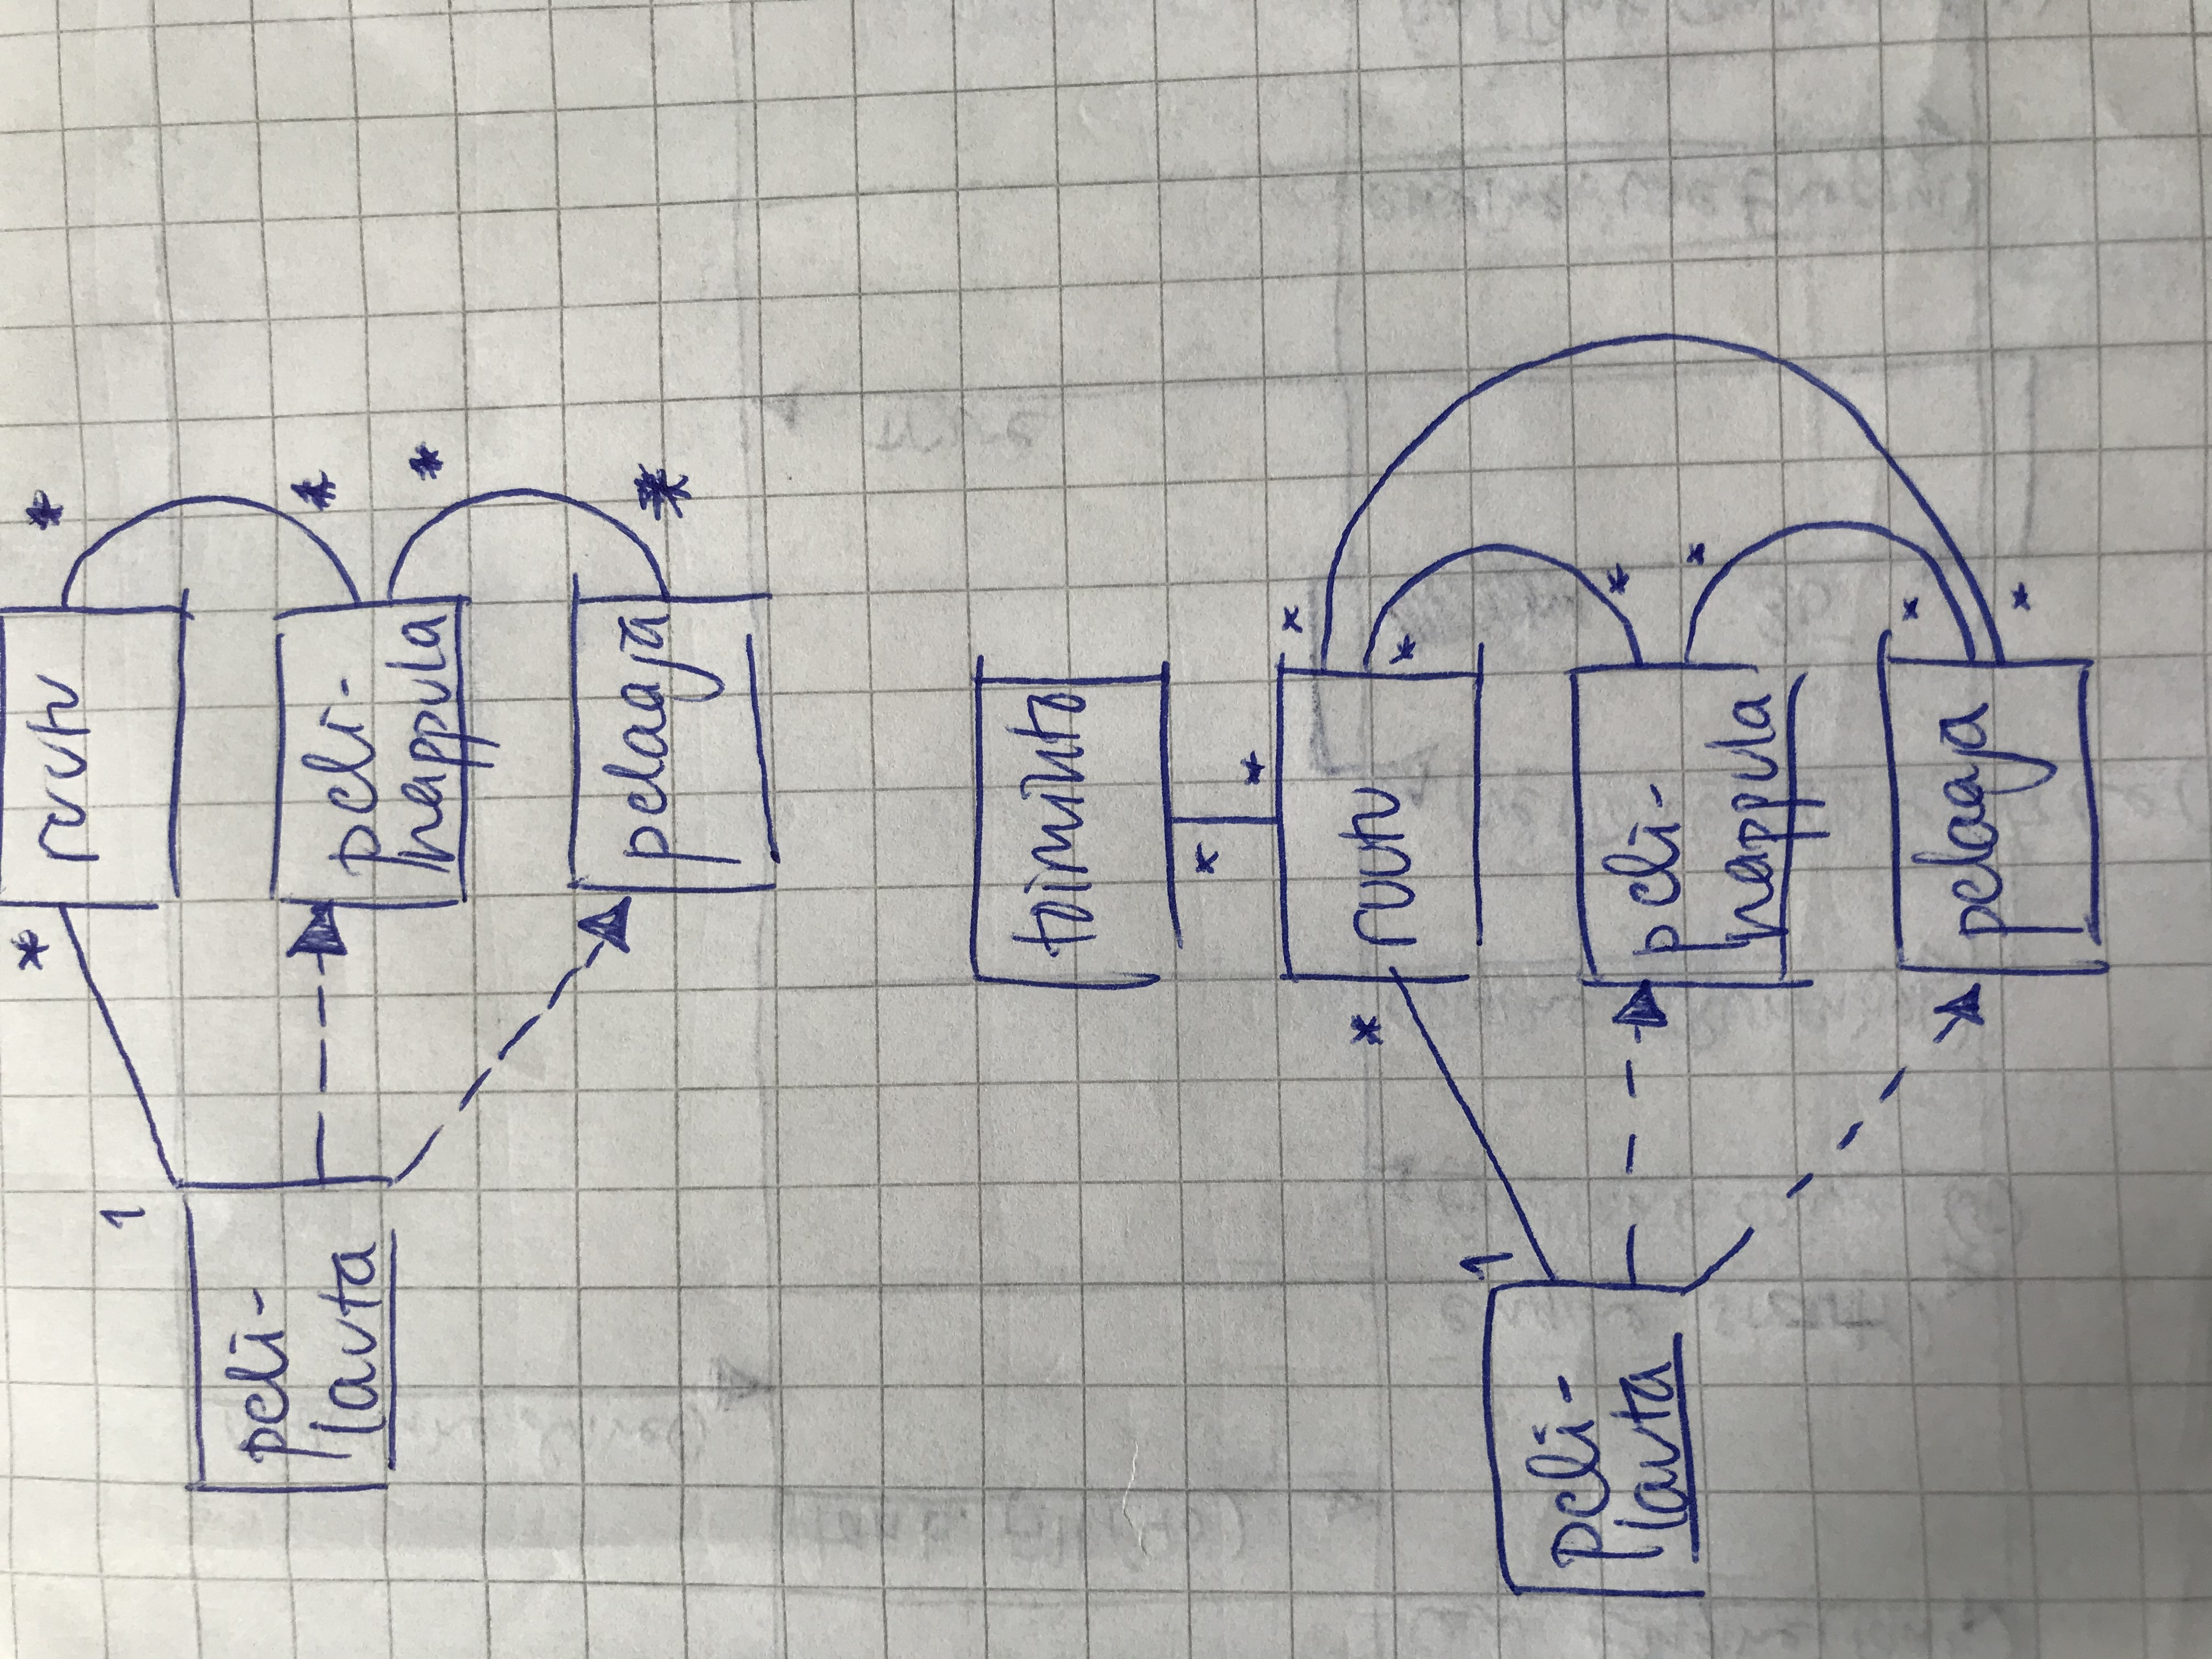 * ruutu *
1
peli-
lauta
peli-
nappula
*
*
pelaaja
*
toiminto
*
*
*
* ruutu
*
1
peli-
lauta
peli-
nappula
*
*
pelaaja
*
*